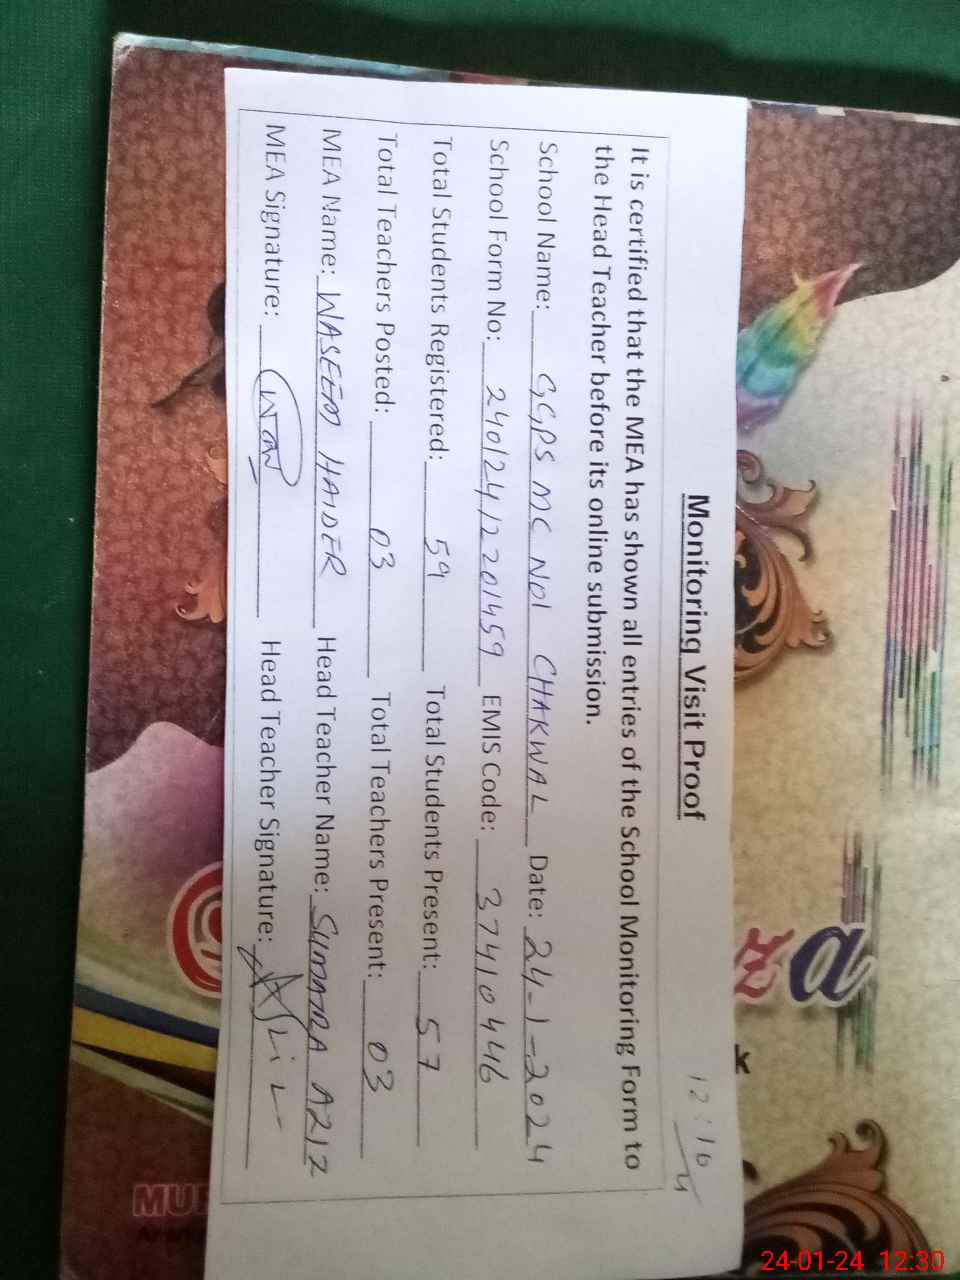 Monitoring Visit Proof
12:16
It is certified that the MEA has shown all entries of the School Monitoring Form to
the Head Teacher before its online submission.
School Name: GGPS MC NO1 CHAKWAL Date: 24-1-2024
School Form No: 24012412201459 EMIS Code: 37410446
Total Students Registered: 59 Total Students Present: 57
Total Teachers Posted: 03 Total Teachers Present: 03
MEA Name: WASEEM HAIDER Head Teacher Name: SUMAIRA AZIZ
MEA Signature: Head Teacher Signature:
za
k
MU
24-01-24 12:30